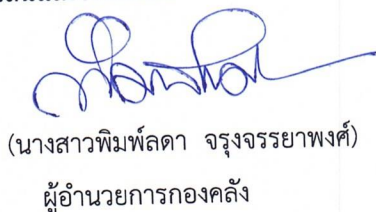 (นางสาวพิมพ์ลดา จรุงจรรยาพงศ์)
ผู้อำนวยการกองคลัง